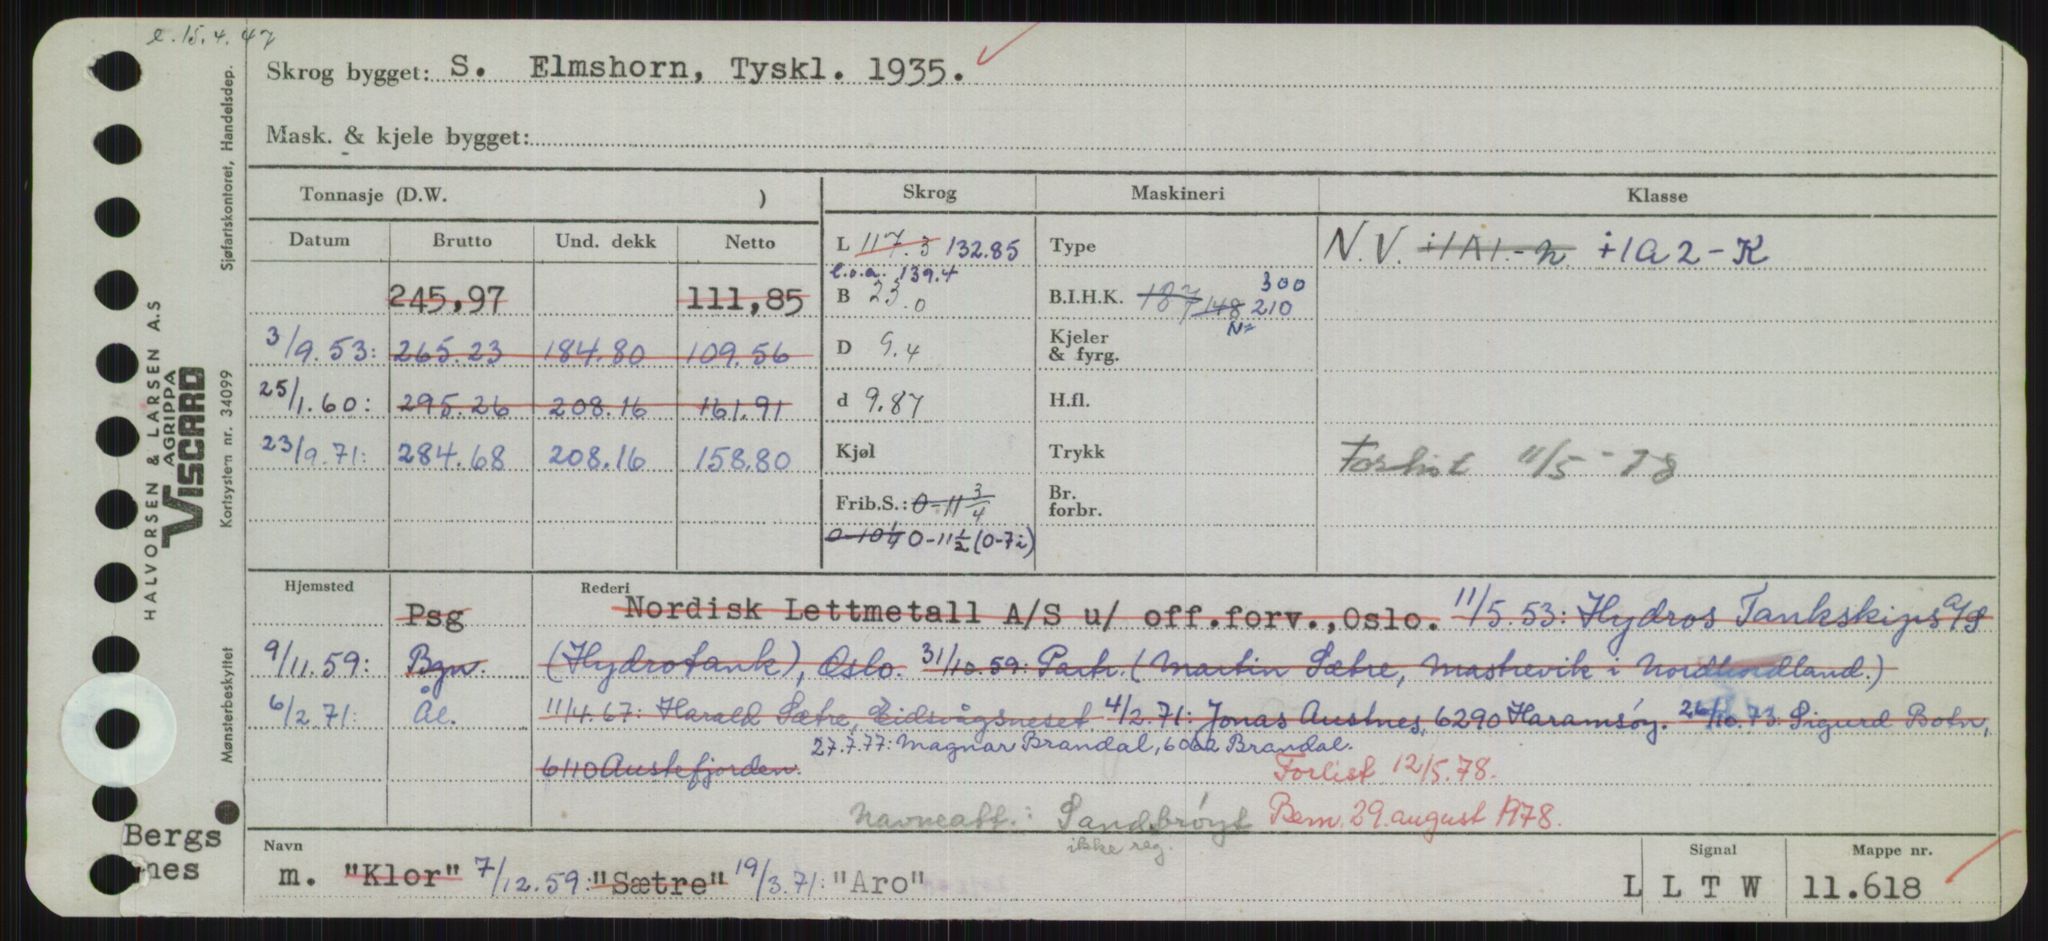 e. 15.4.47
Skrog bygget: S. Elmshorn, Tyskl. 1935.
Mask. & kjele bygget:
Tonnasje (D.W. )
Skrog
Maskineri
Klasse
Datum Brutto Und. dekk Netto
245,97 111,85
3/9.53: 265.23 184.80 109.56
25/1.60: 295.26 208.16 161.91
23/9.71: 284.68 208.16 158.80
L 117.3 132.85
l.o.a. 139.4
B 23.0
D 9.4
d 9.87
Kjøl
Frib.S.: 0-11 3/4
0-10 1/4 0-11 1/2 (0-7 i)
Type
300
B.I.H.K. 187 148 210
N=
Kjeler
& fyrg.
H.fl.
Trykk
Br.
forbr.
N.V. +1A1.-K +1A2-K
Forlist 11/5-78
Hjemsted
Rederi
Psg Nordisk Lettmetall A/S u/ off.forv.,Oslo. 11/5.53: Hydros Tankskips A/S
9/11.59: Bgn. (Hydrotank), Oslo. 31/10.59: Partr. (Martin Sætre, Mastrevik i Nordhordland.)
6/2.71: Ål. 11/4.67: Harald Sætre, Eidsvågsneset 4/2.71: Jonas Austnes, 6290 Haramsøy. 26/10.73: Sigurd Botn,
27.7.77: Magnar Brandal, 6062 Brandal.
6110 Austefjorden.
Forlist 12/5.78.
Navneatt.: Sandbrøyt Bem. 29. august 1978.
ikke reg.
Navn
m. "Klor" 7/12.59: "Sætre" 19/3.71: "Aro"
Signal
L L T W
Mappe nr.
11.618
Bergs
nes
HALVORSEN & LARSEN A.S
AGRIPPA
VISCARD
Sjøfartskontoret, Handelsdep.
Kortsystem nr. 34099
Mønsterbeskyttet